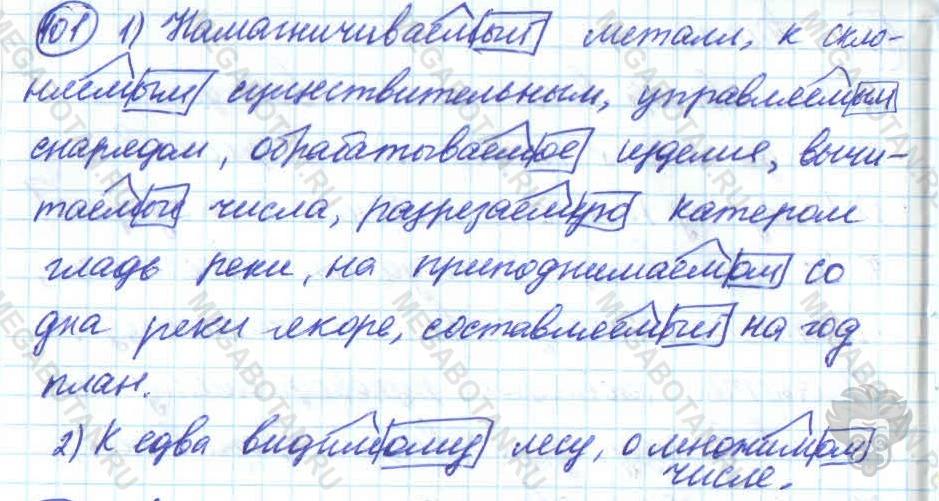 101 1) Намагничиваемый металл, к скло-
няемым существительным, управляемым
снарядом, обрабатываемое изделие, вычи-
таемые числа, разрезаемую катером
гладь реки, на приподнимаемом со
дна реки якоре, составляемый на год
план.
2) К едва видимому лесу, о множимом
числе.
MEGABOTAN.RU